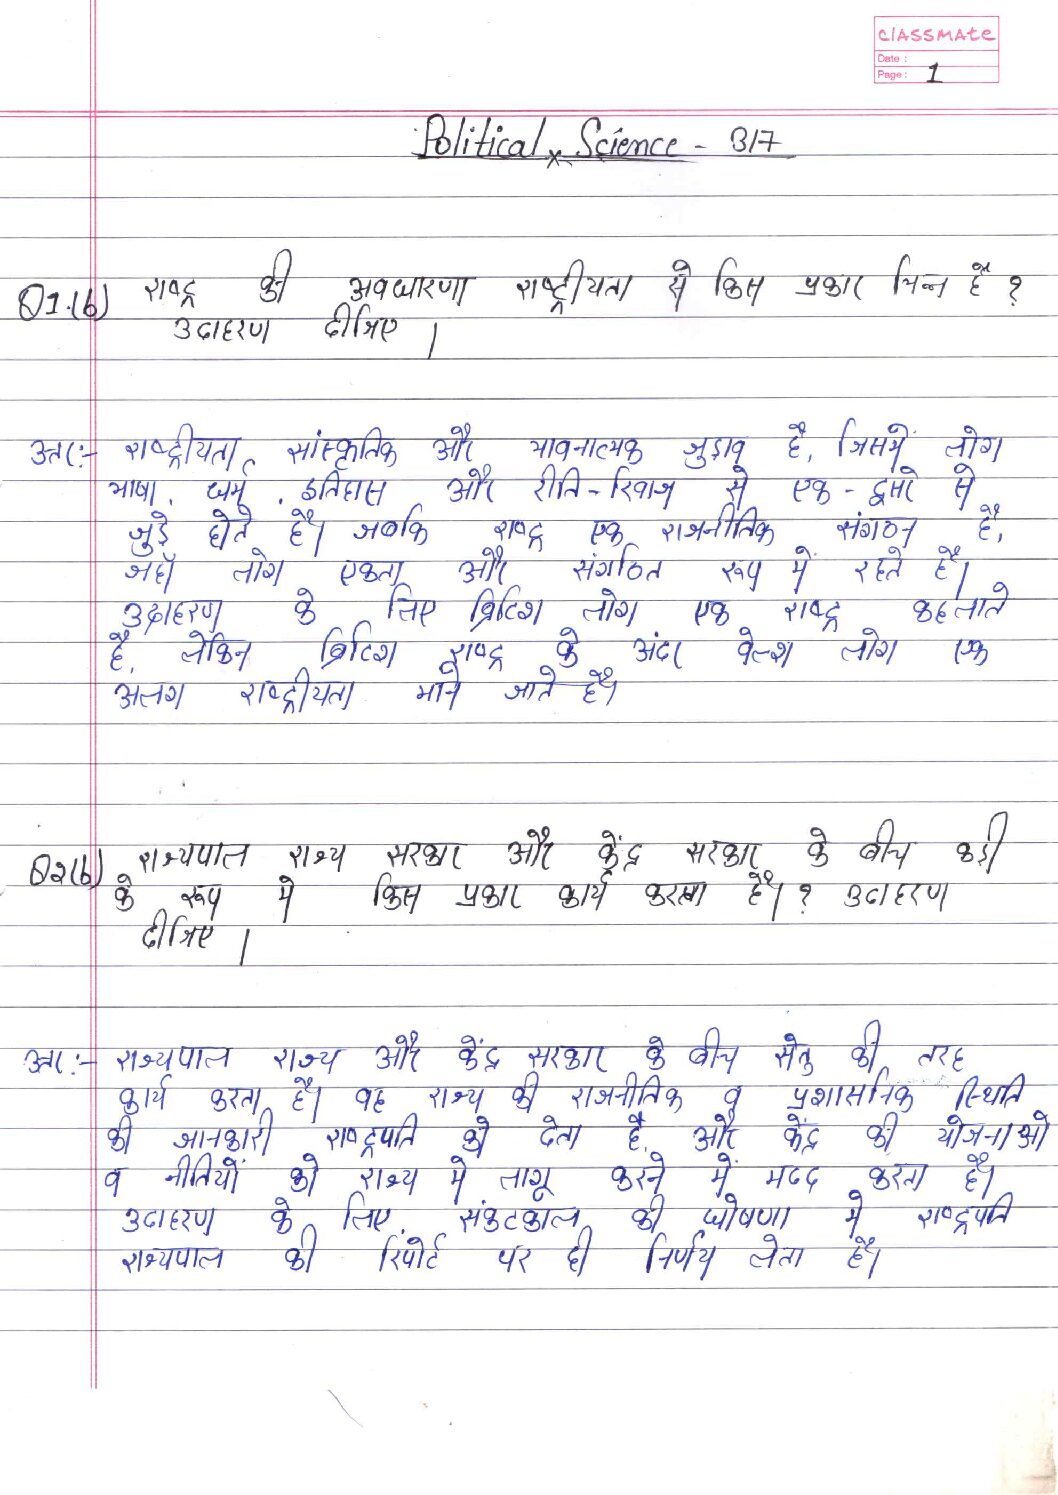 classmate
Date :
Page : 1
Political Science - 317
Q1.(b) राष्ट्र की अवधारणा राष्ट्रीयता से किस प्रकार भिन्न है ?
उदाहरण दीजिए ।
उत्तर:- राष्ट्रीयता, सांस्कृतिक और भावनात्मक जुड़ाव है, जिसमें लोग
भाषा, धर्म, इतिहास और रीति-रिवाज से एक-दूसरे से
जुड़े होते हैं। जबकि राष्ट्र एक राजनीतिक संगठन है,
जहाँ लोग एकता और संगठित रूप में रहते हैं।
उदाहरण के लिए ब्रिटिश लोग एक राष्ट्र कहलाते
है, लेकिन ब्रिटिश राष्ट्र के अंदर वेल्श लोग एक
अलग राष्ट्रीयता माने जाते हैं।
Q2(b) राज्यपाल राज्य सरकार और केंद्र सरकार के बीच कड़ी
के रूप मे किस प्रकार कार्य करता है। ? उदाहरण
दीजिए ।
उत्तर:- राज्यपाल राज्य और केंद्र सरकार के बीच सेतु की तरह
कार्य करता है। वह राज्य की राजनीतिक व प्रशासनिक स्थिति
की जानकारी राष्ट्रपति को देता है, और केंद्र की योजनाओ
व नीतियों को राज्य मे लागू करने में मदद करता है।
उदाहरण के लिए, संकटकाल की घोषणा मे राष्ट्रपति
राज्यपाल की रिपोर्ट पर ही निर्णय लेता है।